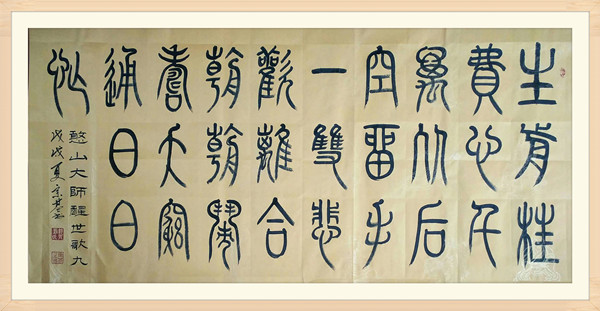 生前枉
費心千
萬死后
空留手
一雙悲
歡離合
朝朝鬧
壽夭窮
通日日
忙
憨山大師醒世歌九
戊戌夏